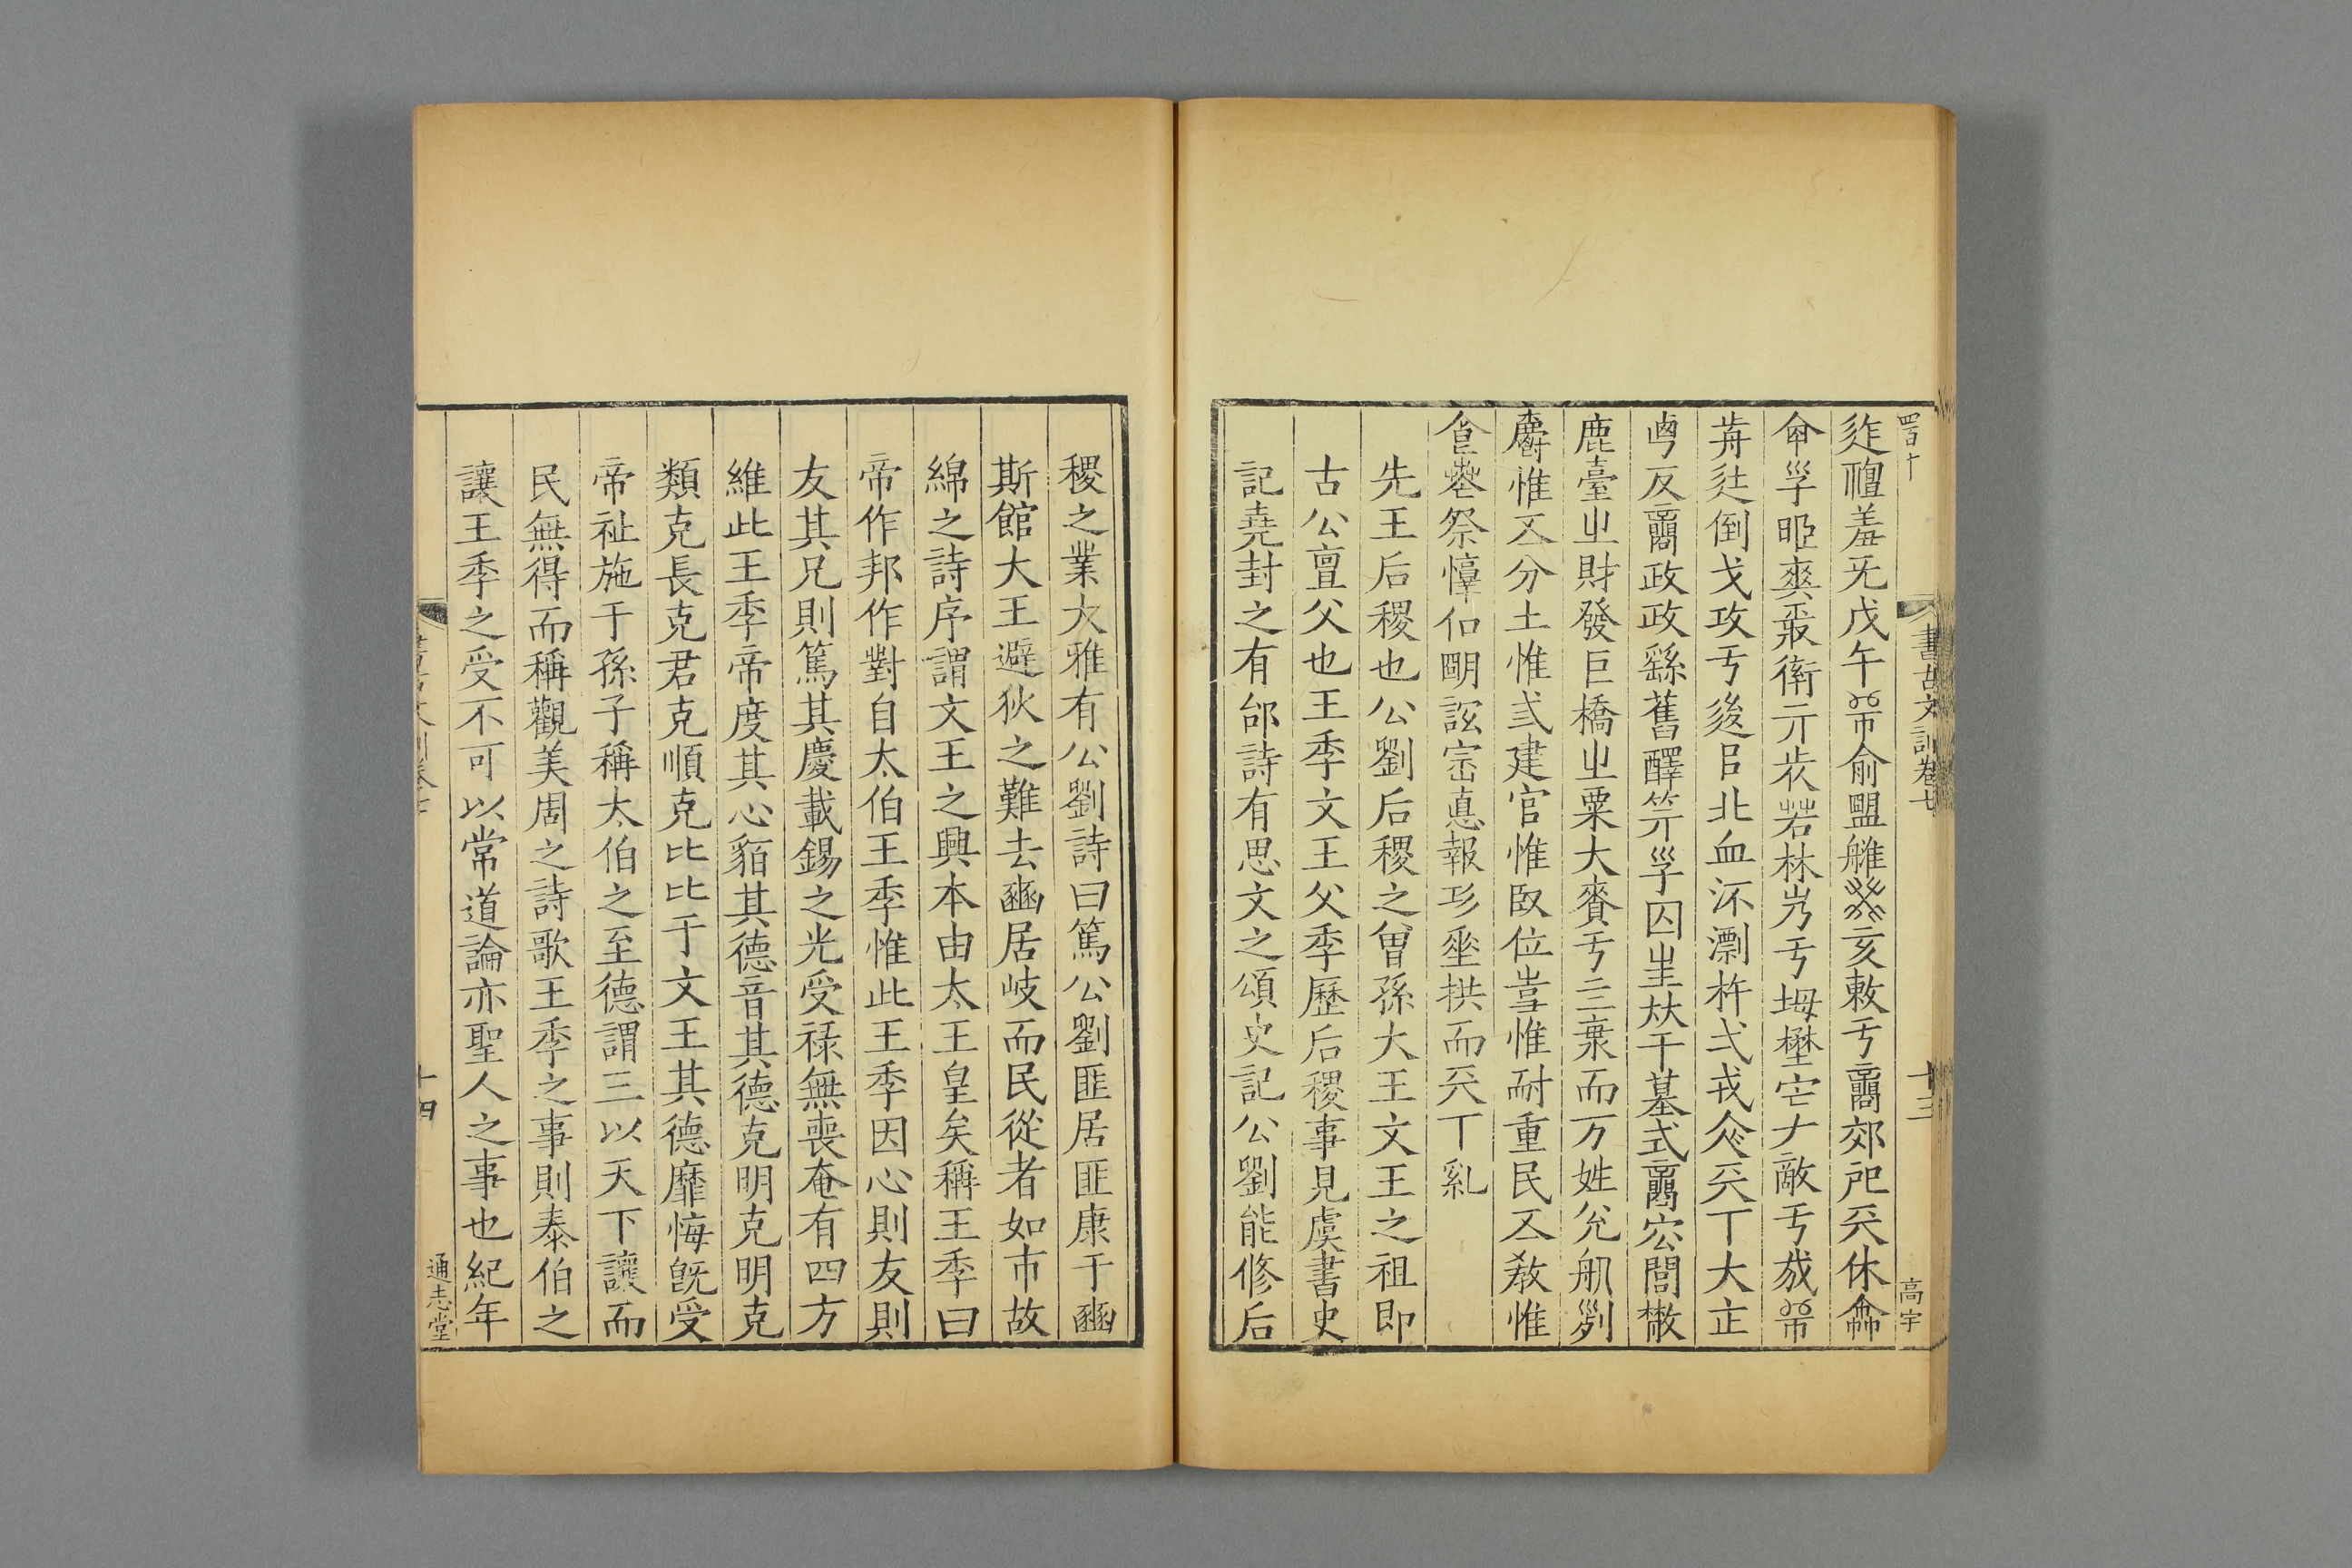 四百十
書古文訓卷七
十三
高宇
迮禋羞兂戊午𠂤俞盟雝癸亥敕于𧶜郊祀𠑺休龠
命𡥉昵爽𠂤衛亓㞸若林岇亐坶壄宐𠂇敵亐𢦶𠂤
歬辻倒戈攻亐後㠯北血㳅漂杵弌戎㑒𠑺丅大㝎
𠧟反𧶜政政繇舊醳竾𡥉囚𡉚㚘干墓式𧶜容閭㪔
鹿臺㞢財發巨橋㞢粟大賚亐三𠱧而万姓兊𦨕𠛱
𪋻惟𠄡分土惟弎建官惟臤位𡴂惟耐重民𠄡敎惟
𠊊𦵏祭㦂㐰朙誼崈悳報㓛𡍮拱而𠑺丅乿
先王后稷也公劉后稷之曾孫大王文王之祖即
古公亶父也王季文王父季歷后稷事見虞書史
記堯封之有邰詩有思文之頌史記公劉能修后
稷之業大雅有公劉詩曰篤公劉匪居匪康于豳
斯館大王避狄之難去豳居岐而民從者如市故
綿之詩序謂文王之興本由太王皇矣稱王季曰
帝作邦作對自太伯王季惟此王季因心則友則
友其兄則篤其慶載錫之光受祿無喪奄有四方
維此王季帝度其心貊其德音其德克明克明克
類克長克君克順克比比于文王其德靡悔旣受
帝祉施于孫子稱太伯之至德謂三以天下讓而
民無得而稱觀美周之詩歌王季之事則泰伯之
讓王季之受不可以常道論亦聖人之事也紀年
十四
通志堂